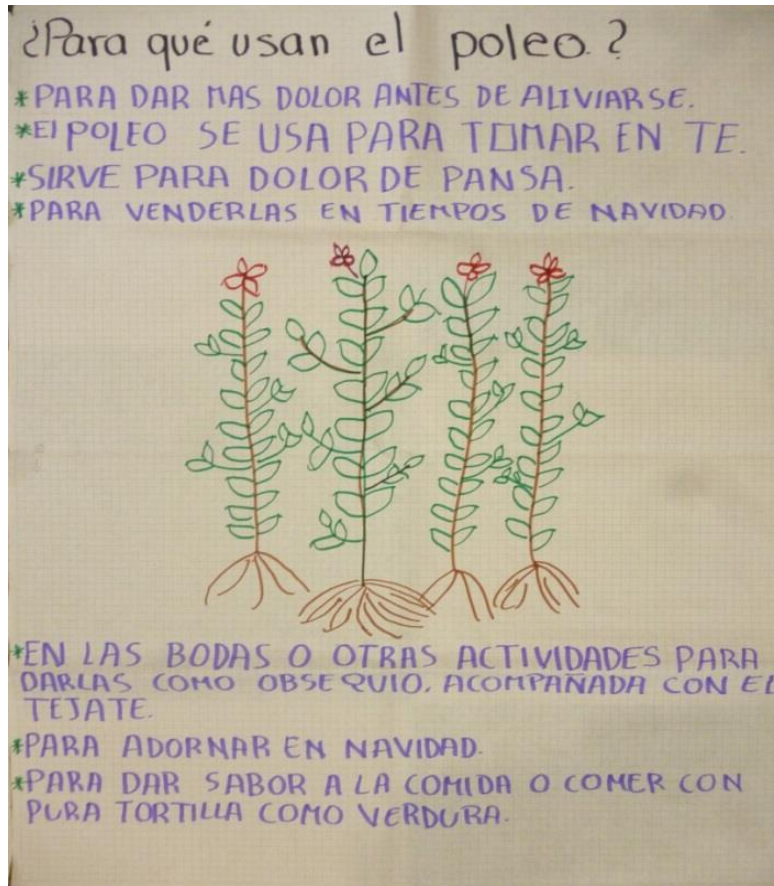 ¿Para qué usan el poleo.?
*PARA DAR MAS DOLOR ANTES DE ALIVIARSE.
*El POLEO SE USA PARA TOMAR EN TE.
*SIRVE PARA DOLOR DE PANSA.
*PARA VENDERLAS EN TIEMPOS DE NAVIDAD.
*EN LAS BODAS O OTRAS ACTIVIDADES PARA
DARLAS COMO OBSEQUIO. ACOMPAÑADA CON EL
TEJATE.
*PARA ADORNAR EN NAVIDAD.
*PARA DAR SABOR A LA COMIDA O COMER CON
PURA TORTILLA COMO VERDURA.